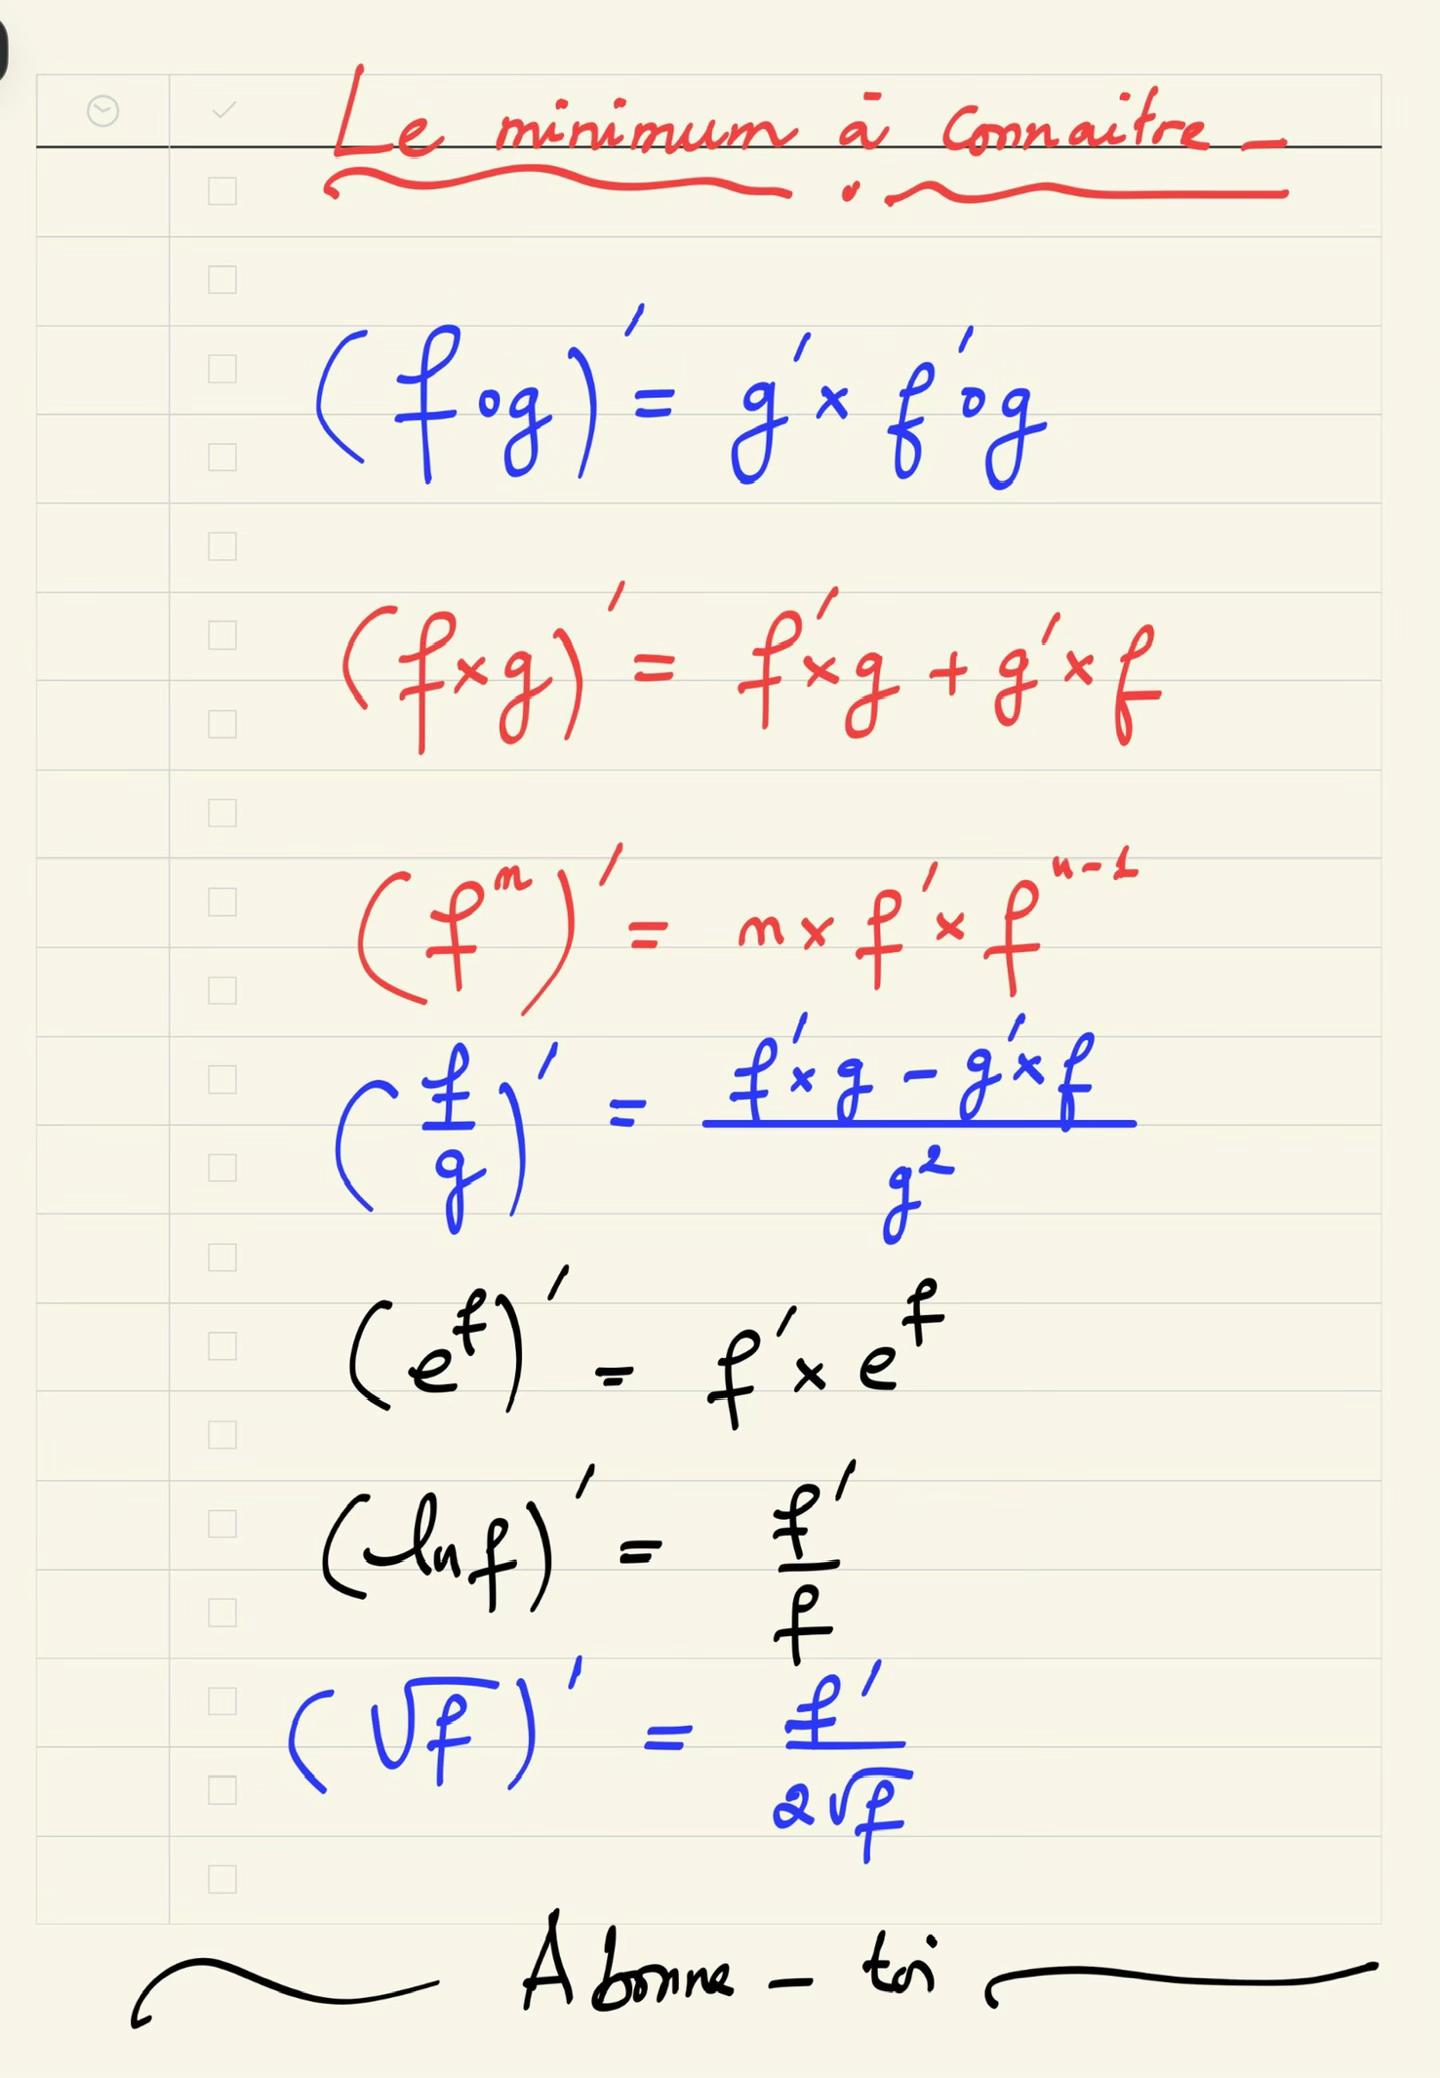 Le minimum à connaitre -
(f∘g)' = g' × f'∘g
(f×g)' = f'×g + g'×f
(fⁿ)' = n × f' × fⁿ⁻¹
(f/g)' = (f'×g - g'×f)/g²
(e^f)' = f' × e^f
(ln f)' = f'/f
(√f)' = f'/(2√f)
Abonne - toi